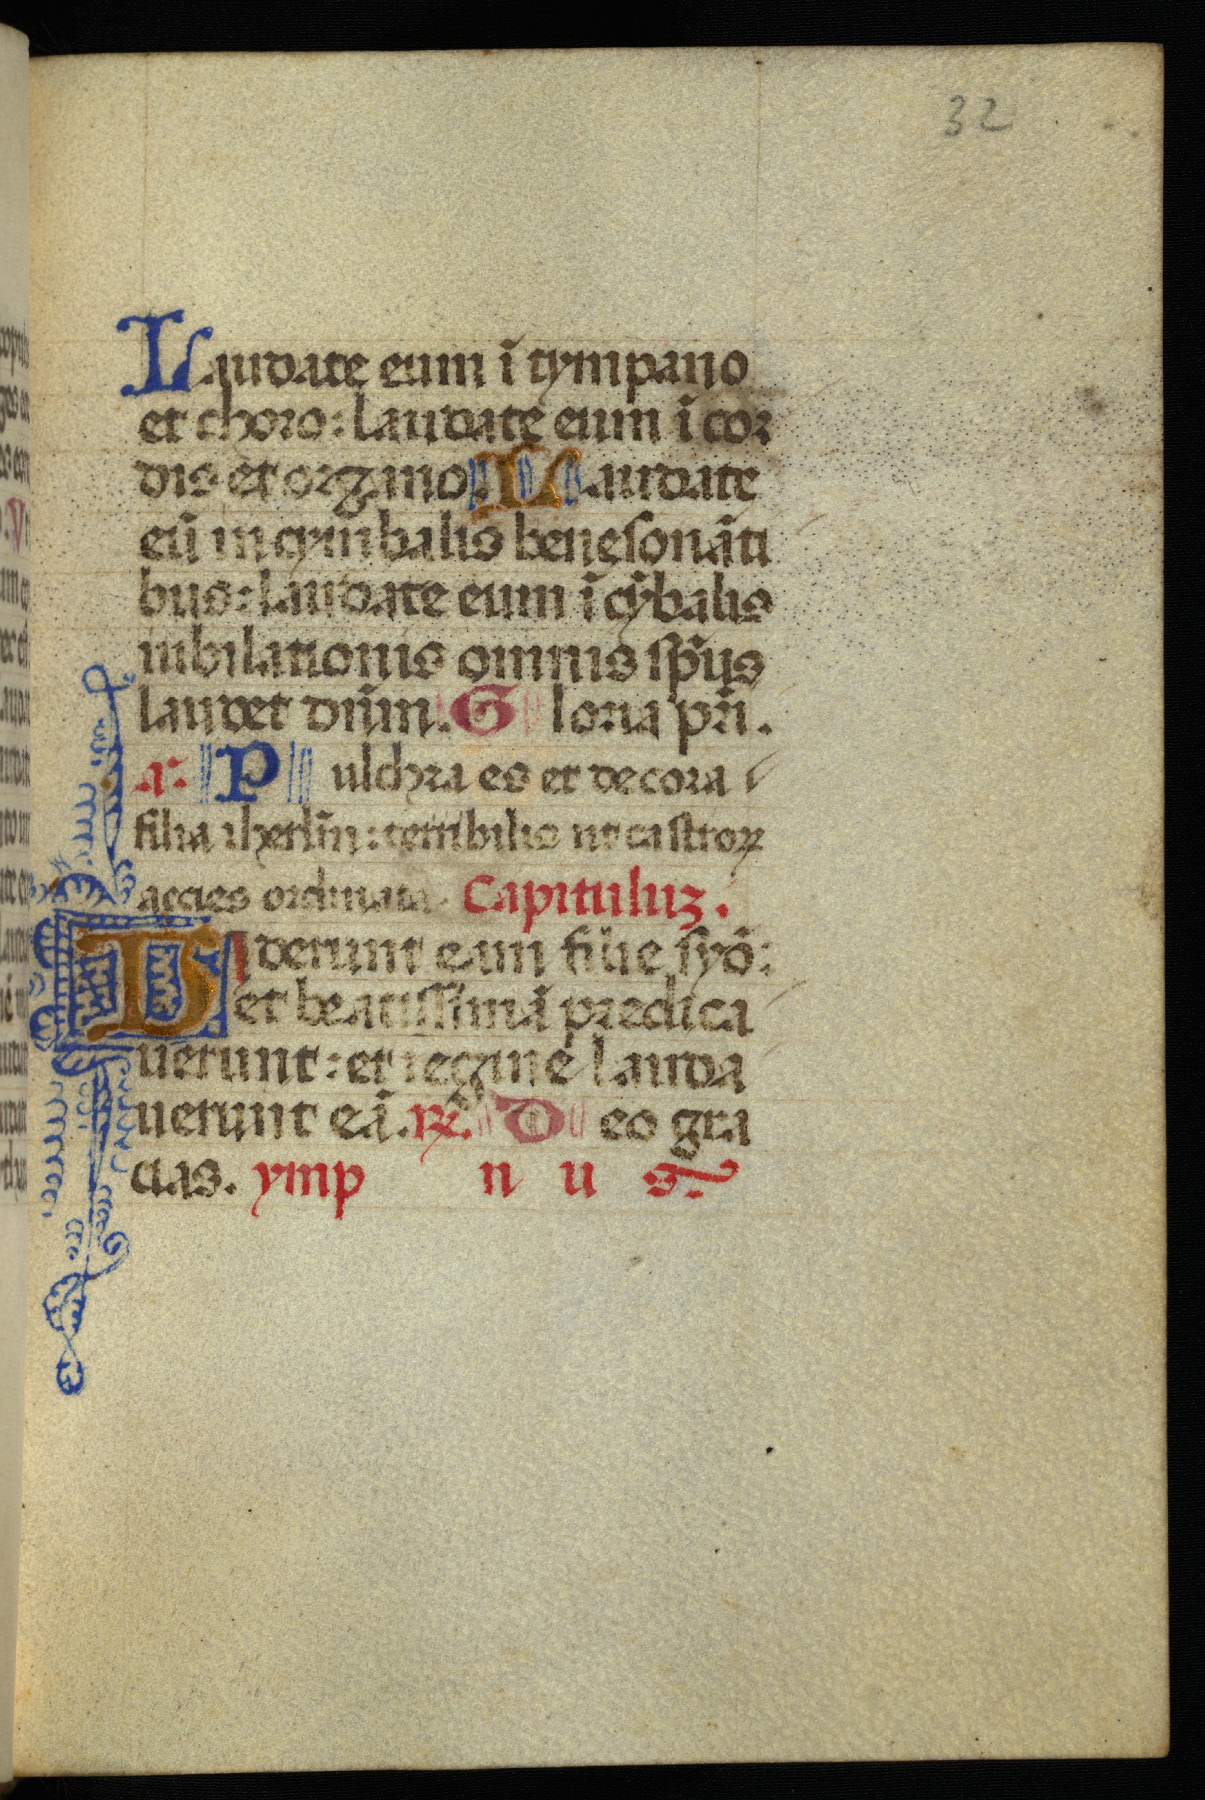 32
Laudate eum ĩ tympano
et choro: laudate eum ĩ cor
dis et organo. Laudate
eũ in cymbalis benesonãti
bus: laudate eum ĩ cỹbalis
iubilationis omnis sp̃us
laudet dñm. Gloria pr̃i.
a: Pulchra es et decora
filia iherl̃m: terribilis ut castroꝝ
accies ordinata. Capituluʒ.
Viderunt eam filie syõ:
et beatissimã predica
uerunt: et regine lauda
uerunt eã. ℟. Deo gra
cias. ympnus.